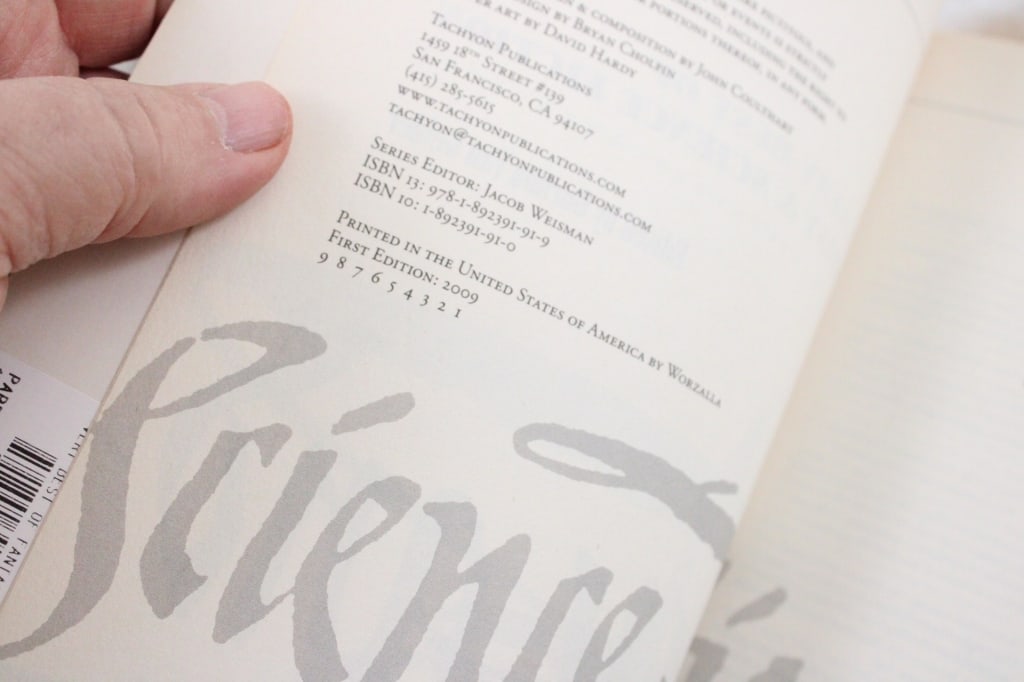 & composition by John Coulthart
design by Bryan Cholfin
art by David Hardy
Tachyon Publications
1459 18th Street #139
San Francisco, CA 94107
(415) 285-5615
www.tachyonpublications.com
tachyon@tachyonpublications.com
Series Editor: Jacob Weisman
ISBN 13: 978-1-892391-91-9
ISBN 10: 1-892391-91-0
Printed in the United States of America by Worzalla
First Edition: 2009
9 8 7 6 5 4 3 2 1
Science
BEST OF FANTA